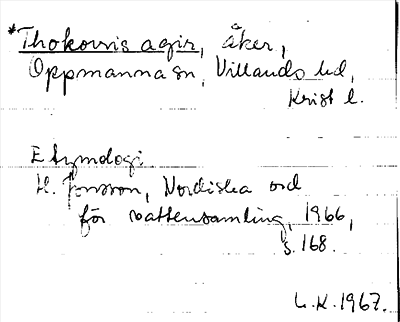 *Thokowis agir, åker,
Oppmanna sn, Villands hd,
Krist l.
Etymologi
H. Jonsson, Nordiska ord
för vattensamling, 1966,
s. 168.
L.K. 1967.